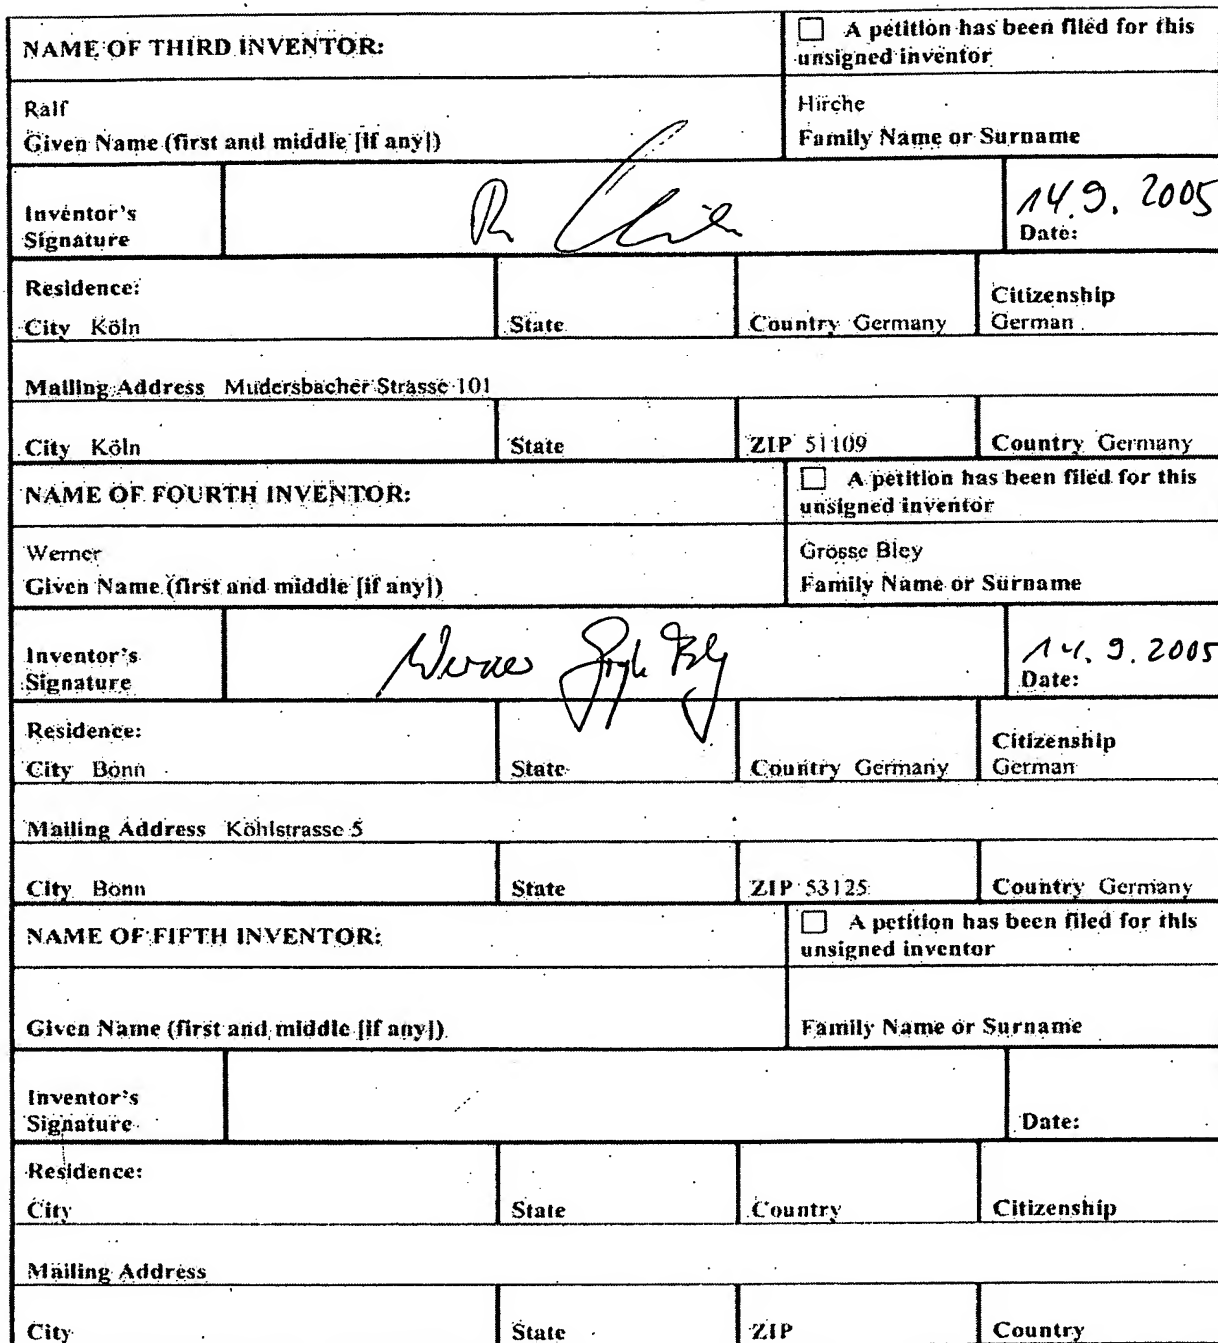 NAME OF THIRD INVENTOR:
☐ A petition has been filed for this
unsigned inventor
Ralf
Given Name (first and middle [if any])
Hirche
Family Name or Surname
Inventor's
Signature
R.
14.9.2005
Date:
Residence:
City Köln
State
Country Germany
Citizenship
German
Mailing Address Mudersbacher Strasse 101
City Köln
State
ZIP 51109
Country Germany
NAME OF FOURTH INVENTOR:
☐ A petition has been filed for this
unsigned inventor
Werner
Given Name (first and middle [if any])
Grosse Bley
Family Name or Surname
Inventor's
Signature
Werner Große Bley
14.9.2005
Date:
Residence:
City Bonn
State
Country Germany
Citizenship
German
Mailing Address Köhlstrasse 5
City Bonn
State
ZIP 53125
Country Germany
NAME OF FIFTH INVENTOR:
☐ A petition has been filed for this
unsigned inventor
Given Name (first and middle [if any])
Family Name or Surname
Inventor's
Signature
Date:
Residence:
City
State
Country
Citizenship
Mailing Address
City
State
ZIP
Country